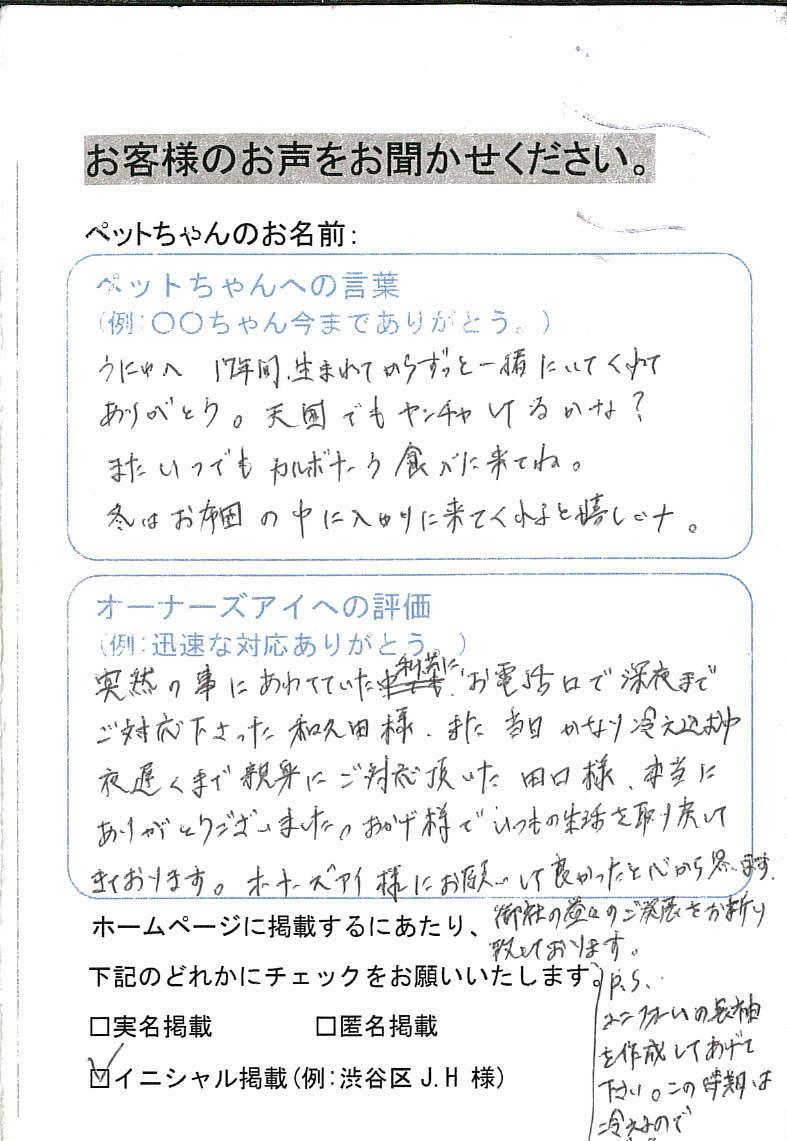 お客様のお声をお聞かせください。
ペットちゃんのお名前：
ペットちゃんへの言葉
（例：〇〇ちゃん今までありがとう。）
うにゅへ 17年間、生まれてからずっと一緒にいてくれて
ありがとう。天国でもヤンチャしてるかな？
またいつでもカルボナーラ食べに来てね。
冬はお布団の中に入りに来てくれると嬉しいナ。
オーナーズアイへの評価
（例：迅速な対応ありがとう。）
突然の事にあわてていた 私共に、お電話口で深夜まで
ご対応下さった和久田様、また当日かなり冷え込む中
夜遅くまで親身にご対応頂いた田口様、本当に
ありがとうございました。おかげ様でいつもの生活を取り戻して
きております。オーナーズアイ様にお願いして良かったと心から思います。
御社の益々のご発展をお祈り
致しております。
ホームページに掲載するにあたり、
下記のどれかにチェックをお願いいたします。
P.S.
ユニフォームの長袖
を作成してあげて
下さい。この時期は
冷えるので
□実名掲載 □匿名掲載
☑イニシャル掲載（例：渋谷区 J.H 様）